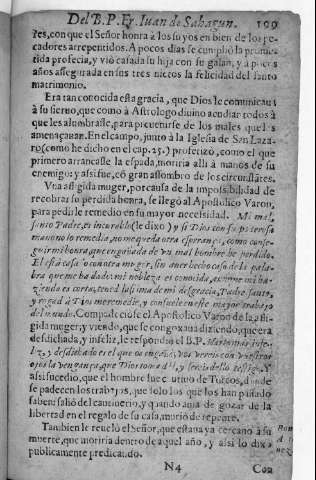 Del B. P. Fr. Iuan de Sahagun. 199
res, con que el Señor honra à los suyos en bien de los pe-
cadores arrepentidos. A pocos dias se cumpliò la prome-
tida profecia, y viò casada su hija con su galan, y à pocos
años assegurada en sus tres nietos la felicidad del santo
matrimonio.
Era tan conocida esta gracia, que Dios le comunicaua
à su sieruo, que como à Astrologo diuino acudian todos à
que les alumbrasse, para preuenirse de los males que les
amenaçauan. En el campo, junto à la Iglesia de San Laza-
ro (como he dicho en el cap. 25.) profetizò, como el que
primero arrancasse la espada, moriria alli à manos de su
enemigo: y assi fue, cõ gran assombro de los circunstãtes.
Vna afligida muger, por causa de la impossibilidad de
recobrar su perdida honra, se llegò al Apostolico Varon,
para pedirle remedio en su mayor necessidad. Mi mal,
santo Padre, es incurable (le dixo) y si Dios con su poderosa
mano no lo remedia, no me queda otra esperança, como conse-
guir mi honra, que engañada de vn mal hombre he perdido.
El està casado con otra muger, sin auer hecho caso de la pala-
bra que me ha dado: mi nobleza es conocida, mi
zienda es corta; tened lastima de mi desgracia, Padre santo,
y rogad à Dios me remedie, y consuele en el mayor trabajo
del mundo. Compadeciòse el Apostolico Varon de la afli-
gida muger, y viendo, que se congoxaua diziendo, que era
desdichada, y infeliz, le respondiò el B. P. Mas infe-
liz, y desdichado es el que os engañò, vos vereis con vuestros
ojos la vengança, que Dios toma dèl, y sereis dello testigo. Y
assi sucediò, que el hombre fue cautiuo de Turcos, donde
se padecen los trabajos, que solo los que los han passado
saben: saliò del cautiuerio, y quando auia de gozar de la
libertad en el regalo de su casa, muriò de repente.
Tambien le reuelò el Señor, que estaua ya cercano à su
muerte, que moriria dentro de aquel año, y assi lo dixo
publicamente predicando.
N4 Con